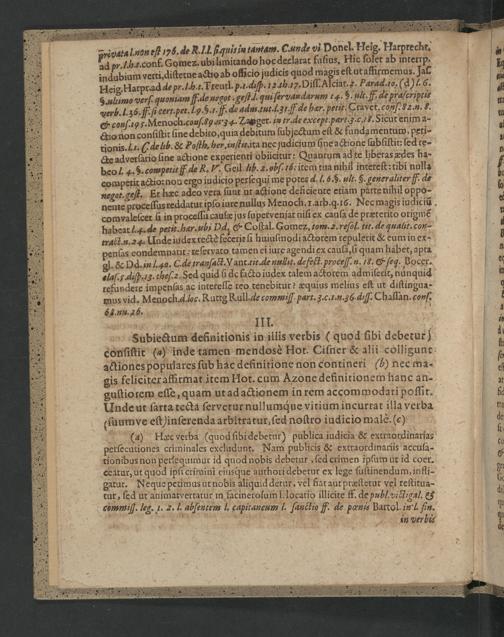 privata l. non est 176. de R. I. l. si quis in tantam. C. unde vi Donel. Heig. Harprecht.
ad pr. I. h. t. conf. Gomez. ubi limitando hoc declarat fusius. Hic solet ab interp.
indubium verti, distetne actio ab officio judicis quod magis est ut affirmemus. Jas.
Heig. Harp. ad de pr. I. h. t. Treutl. p. 1. disp. 12. th. 17. Diss. Alciat. 2. Parad. 10. (d) l. 6.
§. ultimo vers. quoniam ff. de negot. gest. l. qui servandarum 14. §. ult. ff. de præscriptis
verb. l. 36. ff. si cert. pet. l. 9. §. 1. ff. de adm. tut. l. 31. ff de her. petit. Cravet. cons. 82. n. 8.
& cons. 195. Menoch. cons. 89. n. 34. Zanger. in tr. de except. part. 3. c. 18. Sicut enim a-
ctio non consistit sine debito, quia debitum subjectum est & fundamentum, peti-
tionis. l. 1. C. de lib. & Posth. her. instit. ita nec judicium sine actione subsistit: sed re-
cte adversario sine actione experienti obiicitur: Quantum ad te liberas ædes ha-
beo l. 4. §. competit ff de R. V. Geil. lib. 2. obs. 16. item tua nihil interest: tibi nulla
competit actio: non ergo judicio persequi me potes d. l. 6. §. ult. §. generaliter ff. de
negot. gest. Et hæc adeo vera sunt ut actione deficiente etiam parte nihil oppo-
nente processus reddatur ipso iure nullus Menoch. 1. arb. q. 16. Nec magis judiciū
convalescet si in processu causæ jus superveniat nisi ex causa de præterito originē
habeat l. 4. de petit. her. ubi Dd. & Costal. Gomez, tom. 2. resol. tit. de qualit. con-
tract. n. 24. Unde iudex recte fecerit si huiusmodi actorem repulerit & eum in ex-
pensas condemnarit: reservato tamen ei iure agendi ex causa, si quam habet, apta
gl. & Dd. in l. 40. C. de transact. Vant. tit. de nullit. defect. process. n. 18. & seq. Bocer.
clas. 5. disp. 13. thes. 2. Sed quid si de facto iudex talem actorem admiserit, nunquid
refundere impensas ac interesse reo tenebitur? æquius melius est ut distingua-
mus vid. Menoch. d. loc. Rutg Rull. de commiss. part. 3. c. 1. n. 36. diss. Chassan. cons.
68. nu. 26.
III.
Subiectum definitionis in illis verbis (quod sibi debetur)
consistit (a) inde tamen mendosè Hot. Cisner & alii colligunt
actiones populares sub hac definitione non contineri (b) nec ma-
gis feliciter affirmat item Hot. cum Azone definitionem hanc an-
gustiorem esse, quam ut ad actionem in rem accommodari possit.
Unde ut sarta tecta servetur nullumque vitium incurrat illa verba
(suum ve est) inserenda arbitratur, sed nostro iudicio malè. (c)
(a) Hæc verba (quod sibi debetur) publica iudicia & extraordinarias
persecutiones criminales excludunt. Nam publicis & extraordinariis accusa-
tionibus non persequimur id quod nobis debetur, sed crimen ipsum ut id coer-
ceatur, ut quod ipsi crimini eiusque authori debetur ex lege sustinendum, infli-
gatur. Neque petimus ut nobis aliquid detur, vel fiat aut præstetur vel restitua-
tur, sed ut animadvertatur in facinerosum l. locatio illicite ff. de publ. victigal. &
commiss. leg. 1. 2. l. absentem l. capitaneum l. sanctio ff. de pœnis Bartol. in l. fin.
in verbis